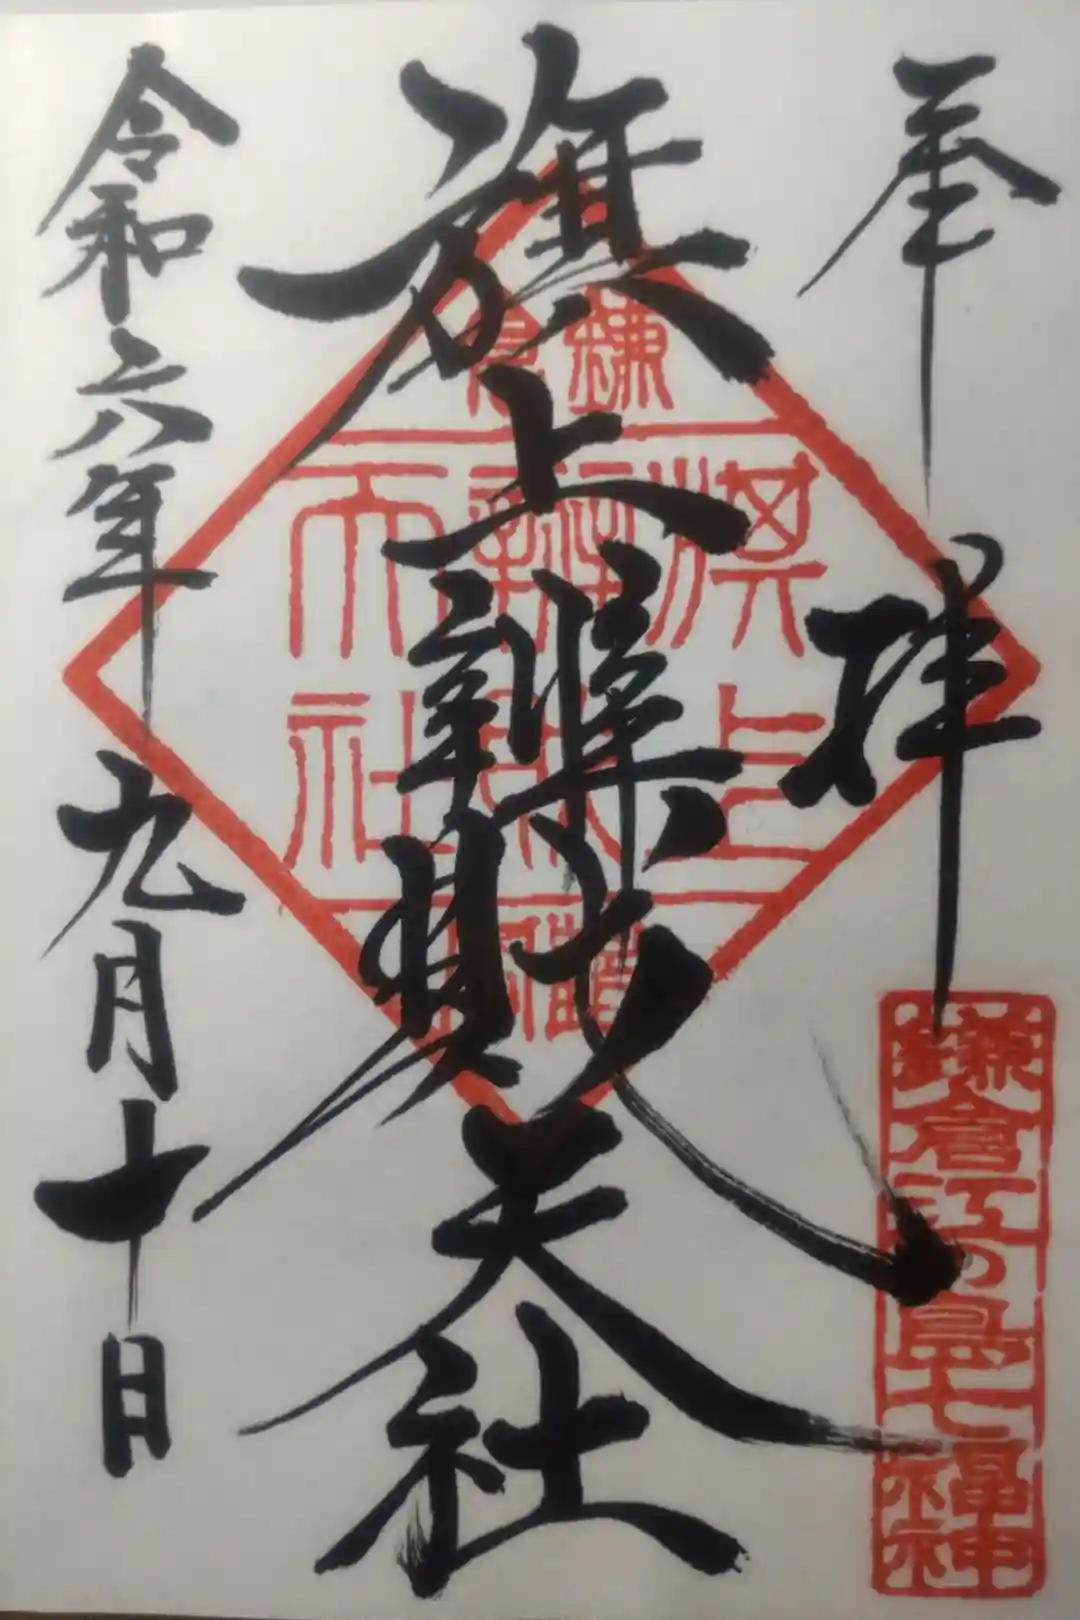 奉拝
鎌倉江の島七福神
旗上辨財天社
鎌倉
旗上
辨財
天社
令和六年九月十日